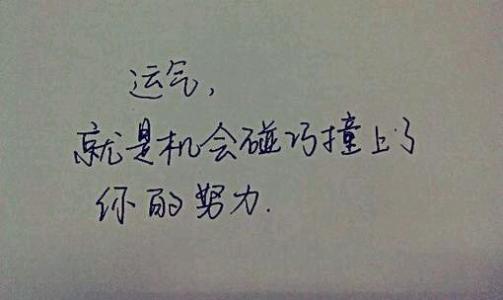 运气，
就是机会碰巧撞上了
你的努力.